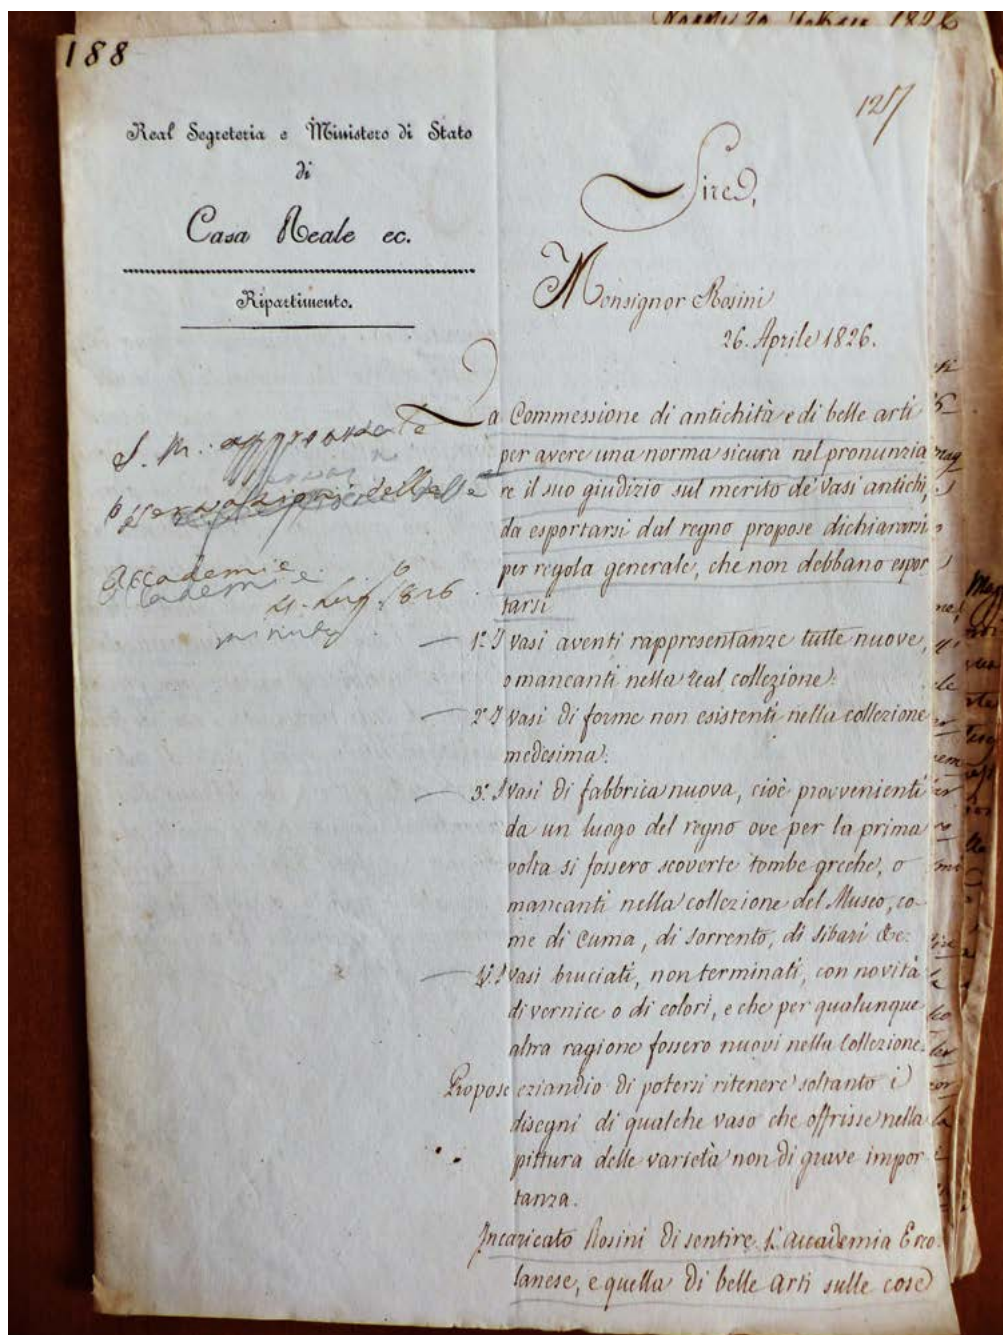 188
127
Real Segreteria e Ministero di Stato
di
Casa Reale ec.
Ripartimento.
Sire,
Monsignor Rosini
26. Aprile 1826.
S. M.
Accademie
1826
La Commessione di antichità e di belle arti
per avere una norma sicura nel pronunzia
re il suo giudizio sul merito de' vasi antichi,
da esportarsi dal regno propose dichiararsi
per regola generale, che non debbano espor
tarsi
1.° I vasi aventi rappresentanze tutte nuove,
o mancanti nella real collezione.
2.° I vasi di forme non esistenti nella collezione
medesima.
3.° I vasi di fabbrica nuova, cioè provvenienti
da un luogo del regno ove per la prima
volta si fossero scoverte tombe greche, o
mancanti nella collezione del Museo, co-
me di Cuma, di Sorrento, di Sibari &c.
4.° I vasi bruciati, non terminati, con novità
di vernice o di colori, e che per qualunque
altra ragione fossero nuovi nella Collezione.
Propose eziandio di potersi ritenere soltanto i
disegni di qualche vaso che offrisse nella
pittura delle varietà non di grave impor
tanza.
Incaricato Rosini di sentire l'accademia Erco
lanese, e quella di belle arti sulle cose